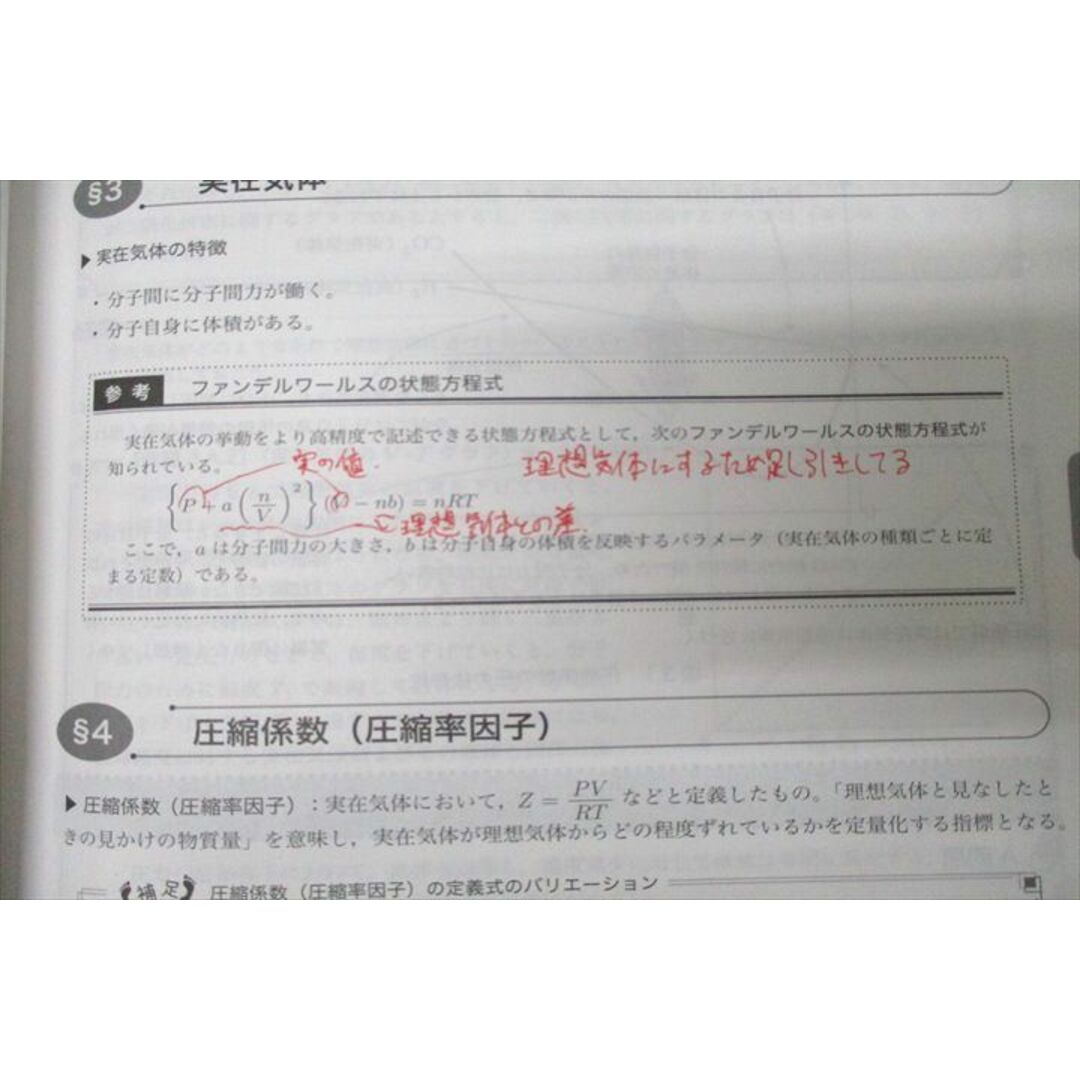 §3 実在気体
▶実在気体の特徴
・分子間に分子間力が働く。
・分子自身に体積がある。
参考 ファンデルワールスの状態方程式
実在気体の挙動をより高精度で記述できる状態方程式として,次のファンデルワールスの状態方程式が
知られている。
実の値.
理想気体にするため足し引きしてる
{P + a(n/V)^2}(V - nb) = nRT
理想気体との差.
ここで,a は分子間力の大きさ,b は分子自身の体積を反映するパラメータ(実在気体の種類ごとに定
まる定数)である。
§4 圧縮係数(圧縮率因子)
▶圧縮係数(圧縮率因子):実在気体において,Z = PV/RT などと定義したもの。「理想気体と見なしたと
きの見かけの物質量」を意味し,実在気体が理想気体からどの程度ずれているかを定量化する指標となる。
補足 圧縮係数(圧縮率因子)の定義式のバリエーション